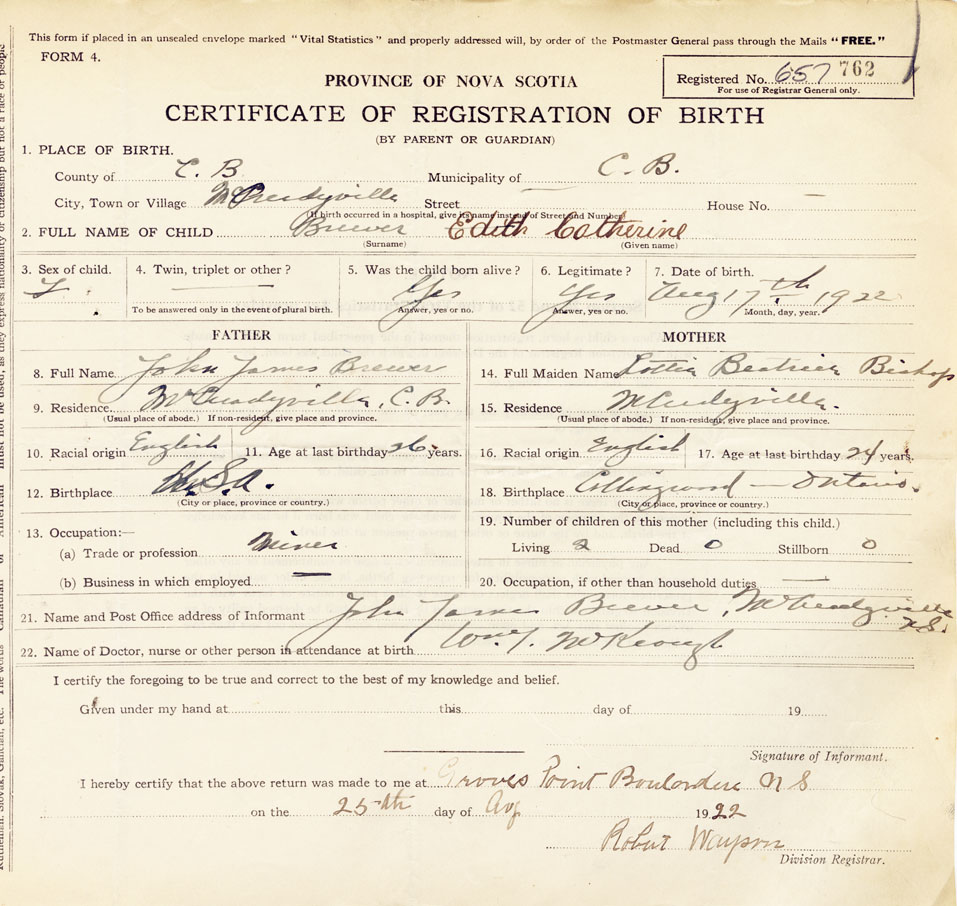 This form if placed in an unsealed envelope marked "Vital Statistics" and properly addressed will, by order of the Postmaster General pass through the Mails "FREE."
FORM 4.
Registered No. 657 762
For use of Registrar General only.
PROVINCE OF NOVA SCOTIA
CERTIFICATE OF REGISTRATION OF BIRTH
(BY PARENT OR GUARDIAN)
1. PLACE OF BIRTH.
County of C. B Municipality of C. B.
City, Town or Village Street House No. —
(If birth occurred in a hospital, give its name instead of Street and Number)
2. FULL NAME OF CHILD Brewer Edith Catherine
(Surname) (Given name)
3. Sex of child. 4. Twin, triplet or other? 5. Was the child born alive? 6. Legitimate? 7. Date of birth.
F — Yes Yes Aug 17th 1922
To be answered only in the event of plural birth. Answer, yes or no. Answer, yes or no. Month, day, year.
FATHER
8. Full Name John James Brewer
9. Residence C. B.
(Usual place of abode.) If non-resident, give place and province.
10. Racial origin English 11. Age at last birthday 26 years.
12. Birthplace U.S.A.
(City or place, province or country.)
13. Occupation:—
(a) Trade or profession Miner
(b) Business in which employed —
MOTHER
14. Full Maiden Name Lottie Beatrice Bishop
15. Residence
(Usual place of abode.) If non-resident, give place and province.
16. Racial origin English 17. Age at last birthday 24 years.
18. Birthplace Collingwood — Ontario.
(City or place, province or country.)
19. Number of children of this mother (including this child.)
Living 2 Dead 0 Stillborn 0
20. Occupation, if other than household duties —
21. Name and Post Office address of Informant John James Brewer, N.S.
22. Name of Doctor, nurse or other person in attendance at birth McKeough
I certify the foregoing to be true and correct to the best of my knowledge and belief.
Given under my hand at this day of 19
Signature of Informant.
I hereby certify that the above return was made to me at Groves Point Boularderie N S
on the 25th day of Aug 1922
Robert
Division Registrar.